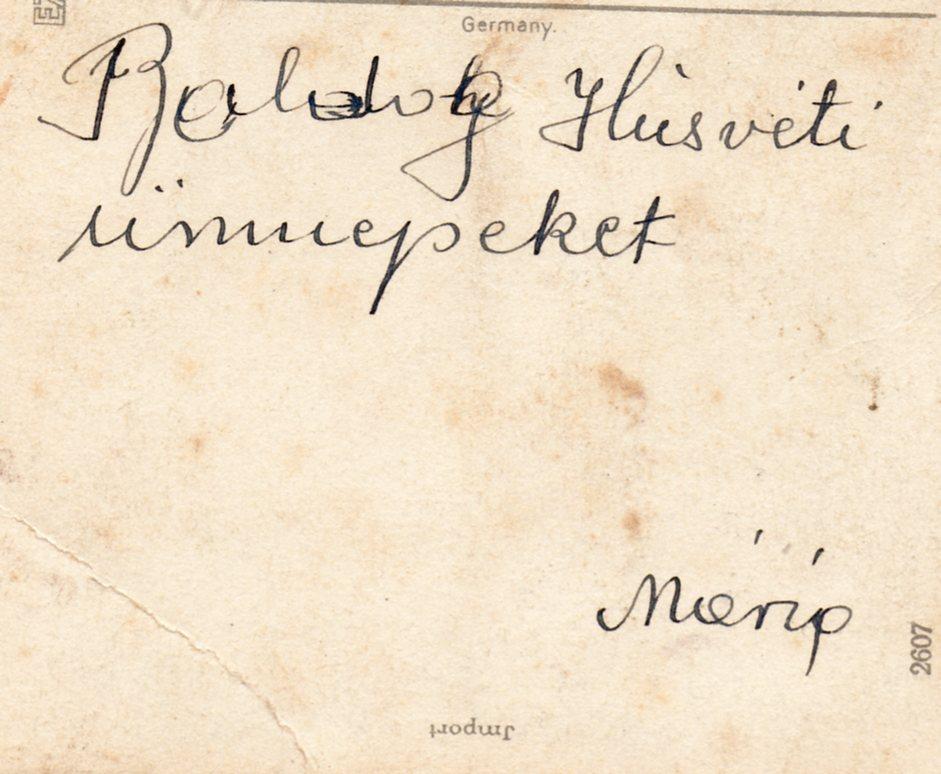 Germany.
Boldog Húsvéti
ünnepeket
Mária
2607
Import